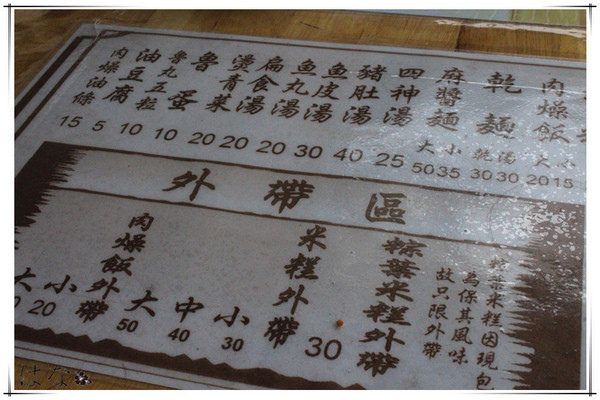 肉燥飯
大 小
20 15
乾麵
乾 湯
30 30
麻醬麵
大 小
50 35
四神湯
25
豬肚湯
40
魚皮湯
30
魚丸湯
20
扁食湯
20
燙青菜
20
魯蛋
10
魯丸五粒
10
油豆腐
5
肉燥油條
15
外帶區
粽葉米糕因現包
為保其風味
故只限外帶
粽葉米糕外帶
30
米糕外帶
小 30
中 40
大 50
肉燥飯外帶
小 20
大